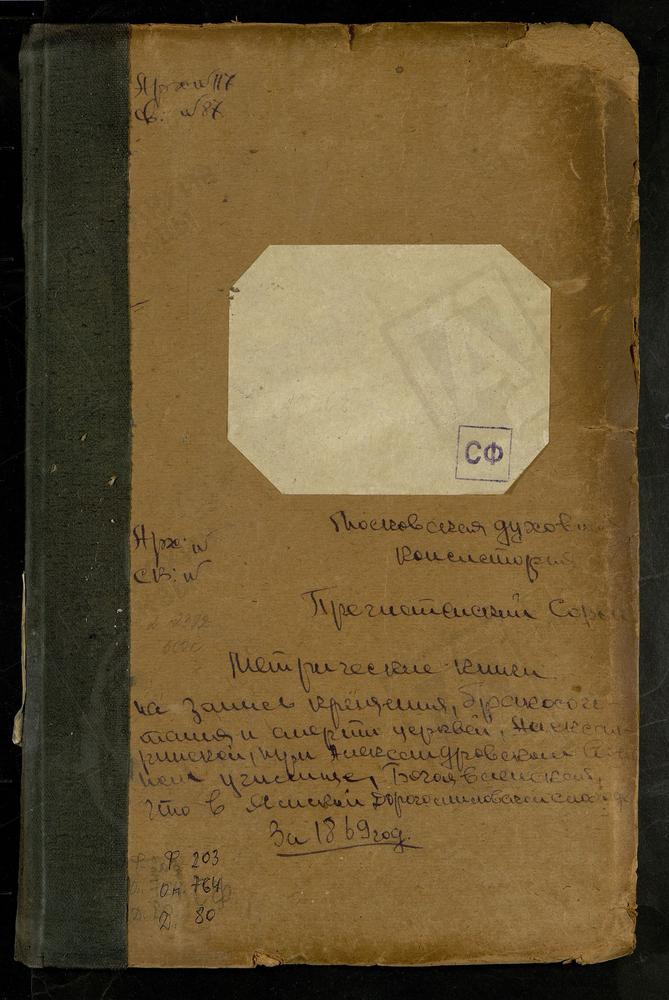 Арх. №117
Св. №87
СФ
Арх: №
св: №
Московская духовн
консистория
Пречистенский Соро
Метрические книги
на запись крещения, бракосоче-
тания и смерти церквей,
при Александровском
училище, Богоявленской,
что в Ямской Дорогомиловской слободе
За 1869 год.
Ф 203
Оп. 764
Д. 80